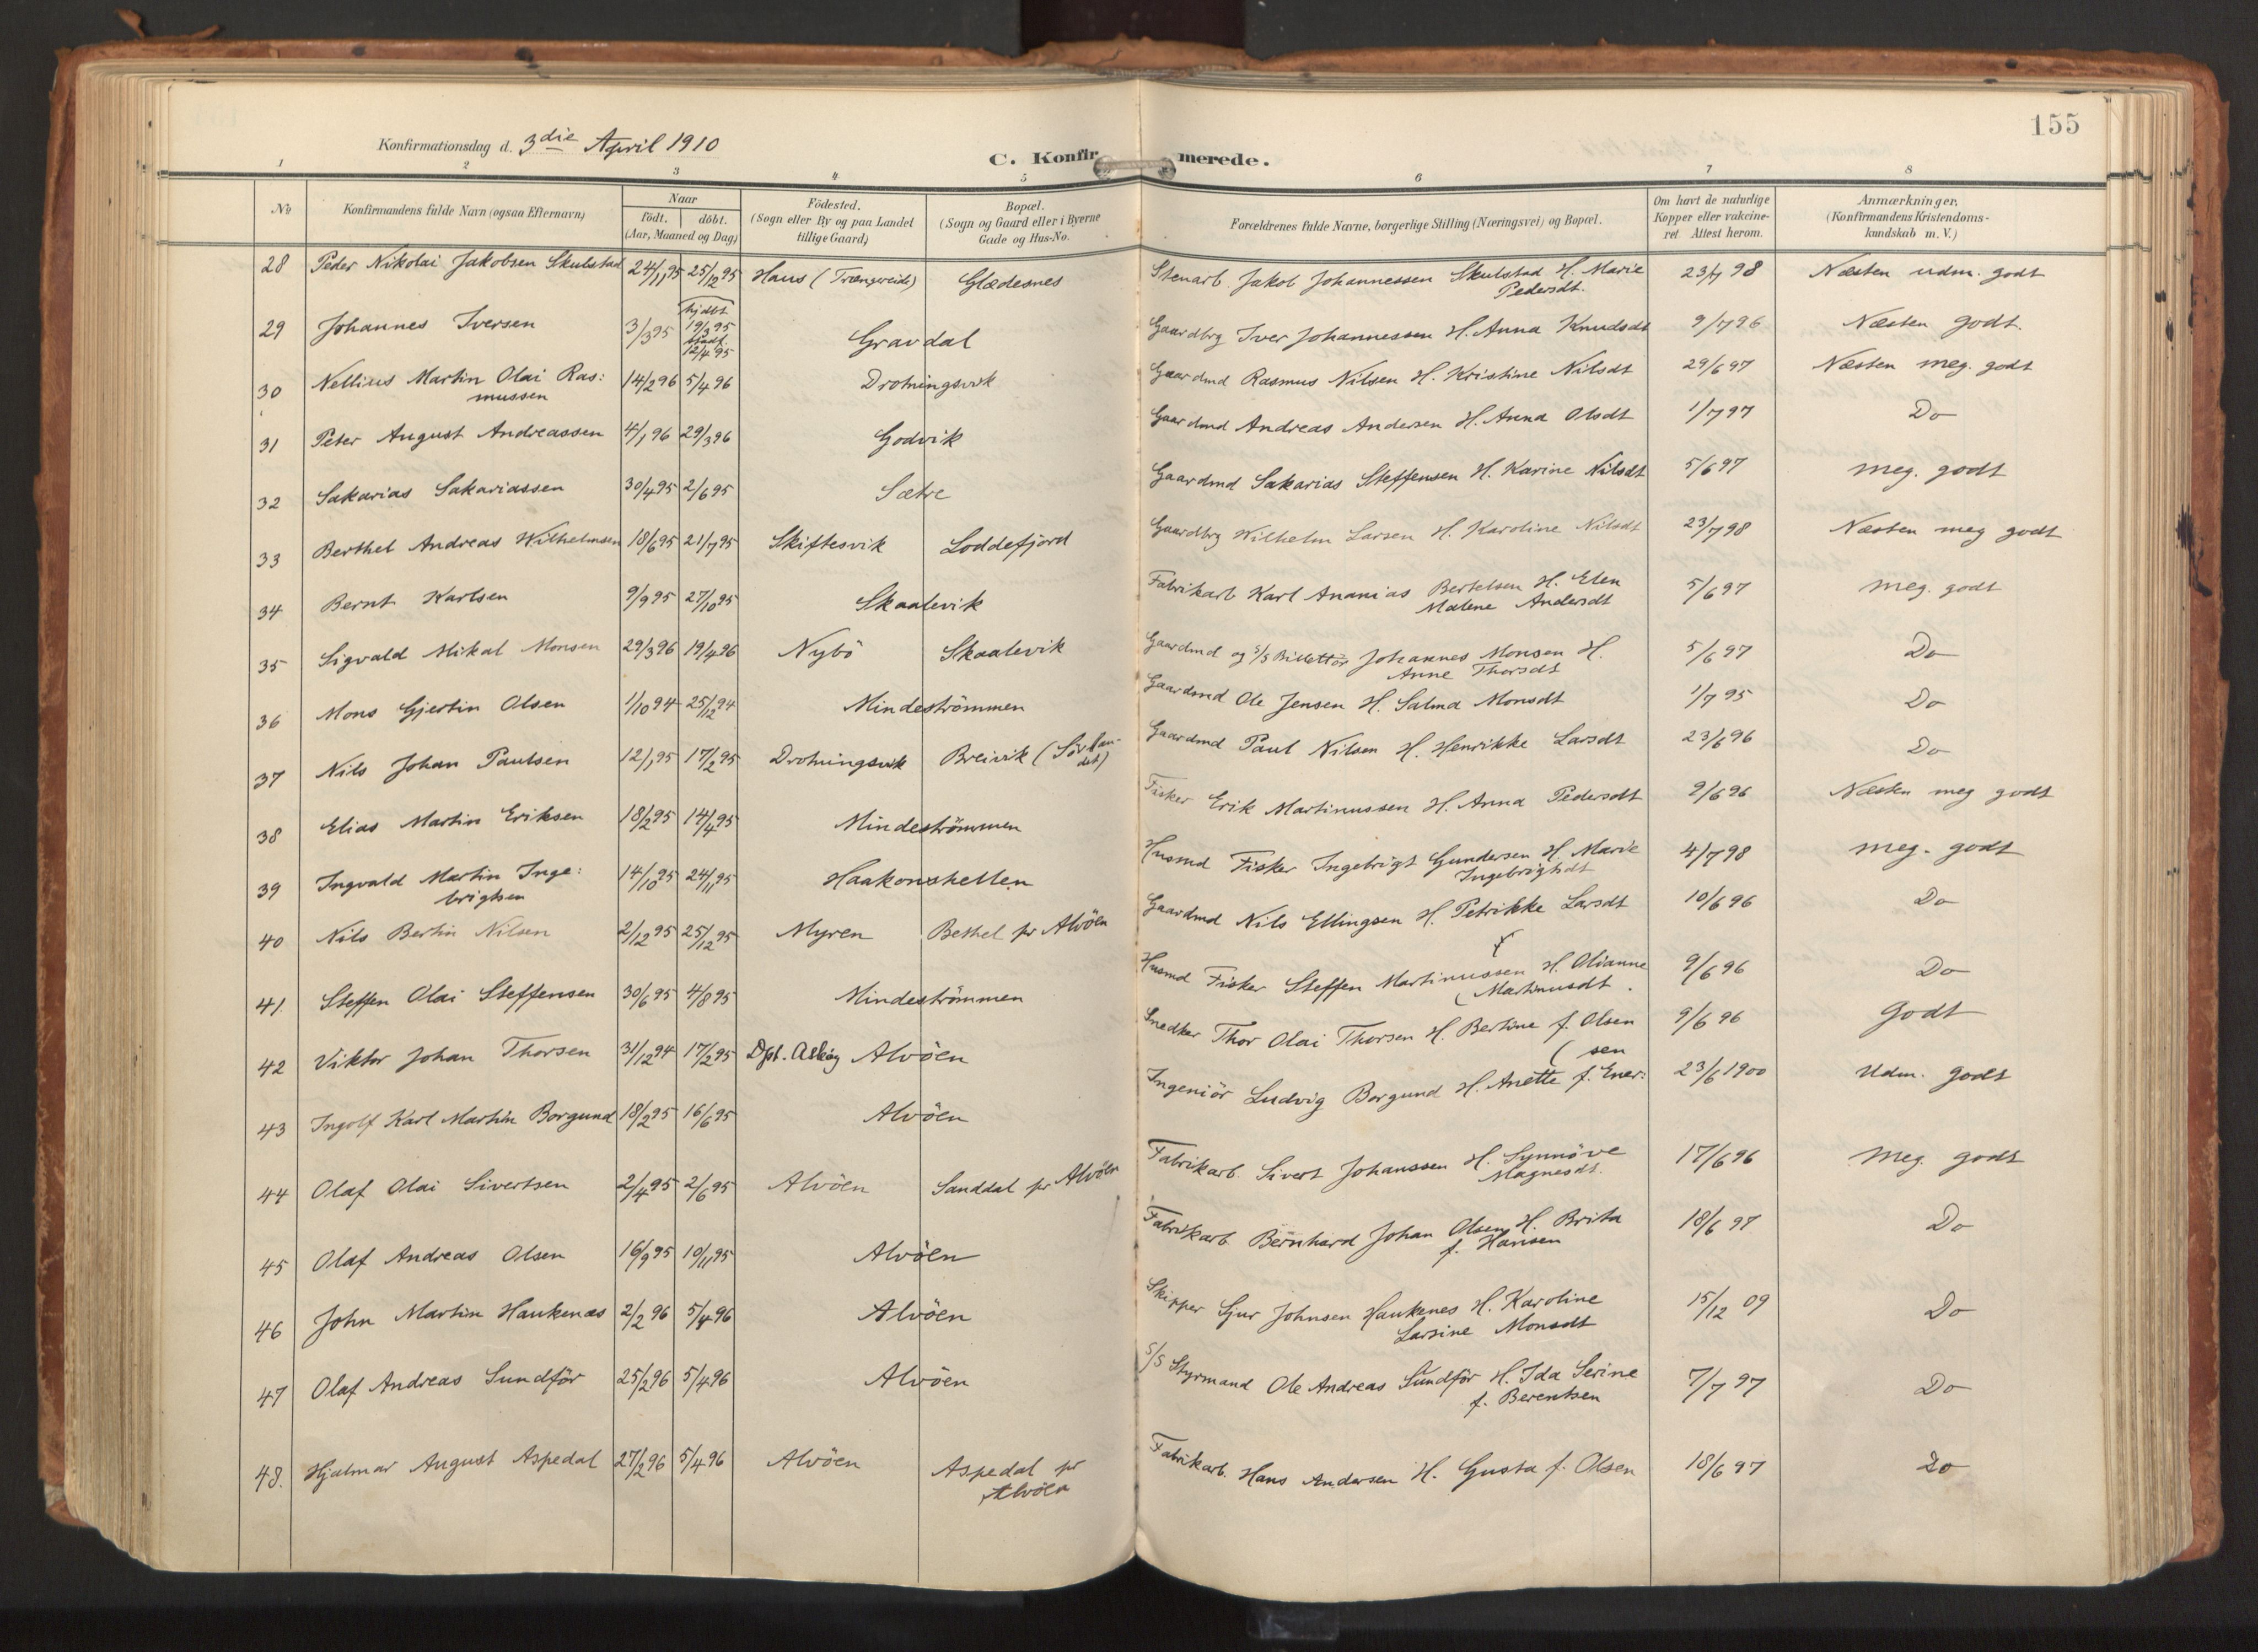 155
Konfirmationsdag d. 3die April 1910
C. Konfirmerede.
1 2 3 4 5 6 7 8
No Konfirmandens fulde Navn (ogsaa Efternavn) Naar født. døbt. (Aar, Maaned og Dag) Fødested. (Sogn eller By og paa Landet tillige Gaard) Bopæl. (Sogn og Gaard eller i Byerne Gade og Hus-No. Forældrenes fulde Navne, borgerlige Stilling (Næringsvei) og Bopæl. Om havt de naturlige Kopper eller vakcineret. Attest herom. Anmærkninger. (Konfirmandens Kristendomskundskab m. V.)
28 Peder Nikolai Jakobsen Skulstad 24/11 95 25/12 95 Haus (Trængereide) Glædesnes Stenarb. Jakob Johannessen Skulstad H. Marie Pedersdt. 23/7 98 Næsten udm. godt
29 Johannes Iversen 3/3 95 hjdbt 19/3 95 12/4 95 Gravdal Gaardbrg Iver Johannessen H. Anna Knudsdt 9/7 96 Næsten godt.
30 Nellius Martin Olai Ras:
mussen 14/2 96 5/4 96 Drotningsvik Gaardmd Rasmus Nilsen H. Kristine Nilsdt 29/6 97 Næsten meg. godt
31 Peter August Andreassen 4/1 96 29/3 96 Godvik Gaardmd Andreas Andersen H. Anna Olsdt 1/7 97 Do
32 Sakarias Sakariassen 30/4 95 2/6 95 Sætre Gaardmd Sakarias Steffensen H. Karine Nilsdt 5/6 97 meg. godt
33 Berthel Andreas Wilhelmsen 18/6 95 21/7 95 Skiftesvik Loddefjord Gaardbrg Wilhelm Larsen H. Karoline Nilsdt 23/7 98 Næsten meg godt
34 Bernt Karlsen 9/9 95 27/10 95 Skaalevik Fabrikarb Karl Ananias Bertelsen H. Elen
Malene Andersdt 5/6 97 meg. godt
35 Sigvald Mikal Monsen 29/3 96 19/4 96 Nybö Skaalevik Gaardmd og S/S Billettör Johannes Monsen H.
Anne Thorsdt 5/6 97 Do
36 Mons Gjertin Olsen 1/10 94 25/12 94 Mindeströmmen Gaardmd Ole Jensen H. Salma Monsdt 1/7 95 Do
37 Nils Johan Paulsen 12/1 95 17/2 95 Drotningsvik Breivik (Sörlandet) Gaardmd Paul Nilsen H. Henrikke Larsdt 23/6 96 Do
38 Elias Martin Eriksen 18/2 95 14/4 95 Mindeströmmen Fisker Erik Martinussen H. Anna Pedersdt 9/6 96 Næsten meg godt
39 Ingvald Martin Inge:
brigtsen 14/10 95 24/11 95 Haakonshellen Husmd Fisker Ingebrigt Gundersen H. Marie
Ingebrigtsdt 4/7 98 meg. godt
40 Nils Bertin Nilsen 2/12 95 25/12 95 Myren Bethel pr Alvöen Gaardmd Nils Ellingsen H. Petrikke Larsdt 10/6 96 Do
41 Steffen Olai Steffensen 30/6 95 4/8 95 Mindeströmmen Husmd Fisker Steffen Martinussen H. Olianne
(Martinusdt. 9/6 96 Do
42 Viktor Johan Thorsen 31/12 94 17/2 95 Dpt. Askøy Alvöen Snedker Thor Olai Thorsen H. Bertine f. Olsen 9/6 96 godt
43 Ingolf Karl Martin Borgund 18/2 95 16/6 95 Alvöen Ingeniör Ludvig Borgund H. Anette f. Ener:
(sen 23/6 1900 Udm. godt
44 Olaf Olai Sivertsen 2/4 95 2/6 95 Alvöen Sanddal pr Alvöen Fabrikarb. Sivert Johanssen H. Synnöve
Magnesdt. 17/6 96 Meg. godt
45 Olaf Andreas Olsen 16/9 95 10/11 95 Alvöen Fabrikarb. Bernhard Johan Olsen H. Brita
f. Hansen 18/6 97 Do
46 John Martin Haukenæs 2/2 96 5/4 96 Alvöen Skipper Sjur Johnsen Haukenes H. Karoline
Larsine Monsdt 15/12 09 Do
47 Olaf Andreas Sundför 25/2 96 5/4 96 Alvöen S/S Styrmand Ole Andreas Sundför H. Ida Serine
f. Berentsen 7/7 97 Do
48. Hjalmar August Aspedal 27/2 96 5/4 96 Alvöen Aspedal pr
Alvöen Fabrikarb. Hans Andersen H. Gusta f. Olsen 18/6 97 Do